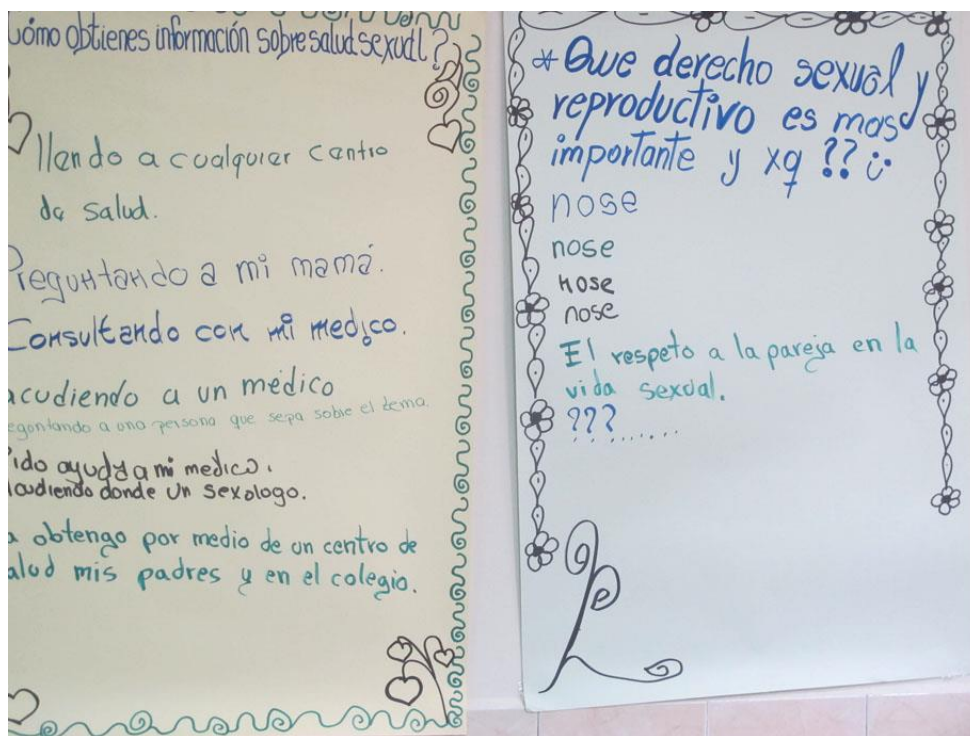 Cómo obtienes información sobre salud sexual?
llendo a cualquier centro
de salud.
Preguntando a mi mamá.
Consultando con mi medico.
acudiendo a un médico
egontando a una persona que sepa sobre el tema.
Pido ayuda a mi medico.
acudiendo donde un sexologo.
a obtengo por medio de un centro de
alud mis padres y en el colegio.
* Que derecho sexual y
reproductivo es mas
importante y xq ??
nose
nose
nose
nose
El respeto a la pareja en la
vida sexual.
???
.........